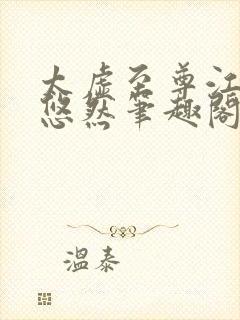 太虚至尊江
悠然笔趣阁
温泰